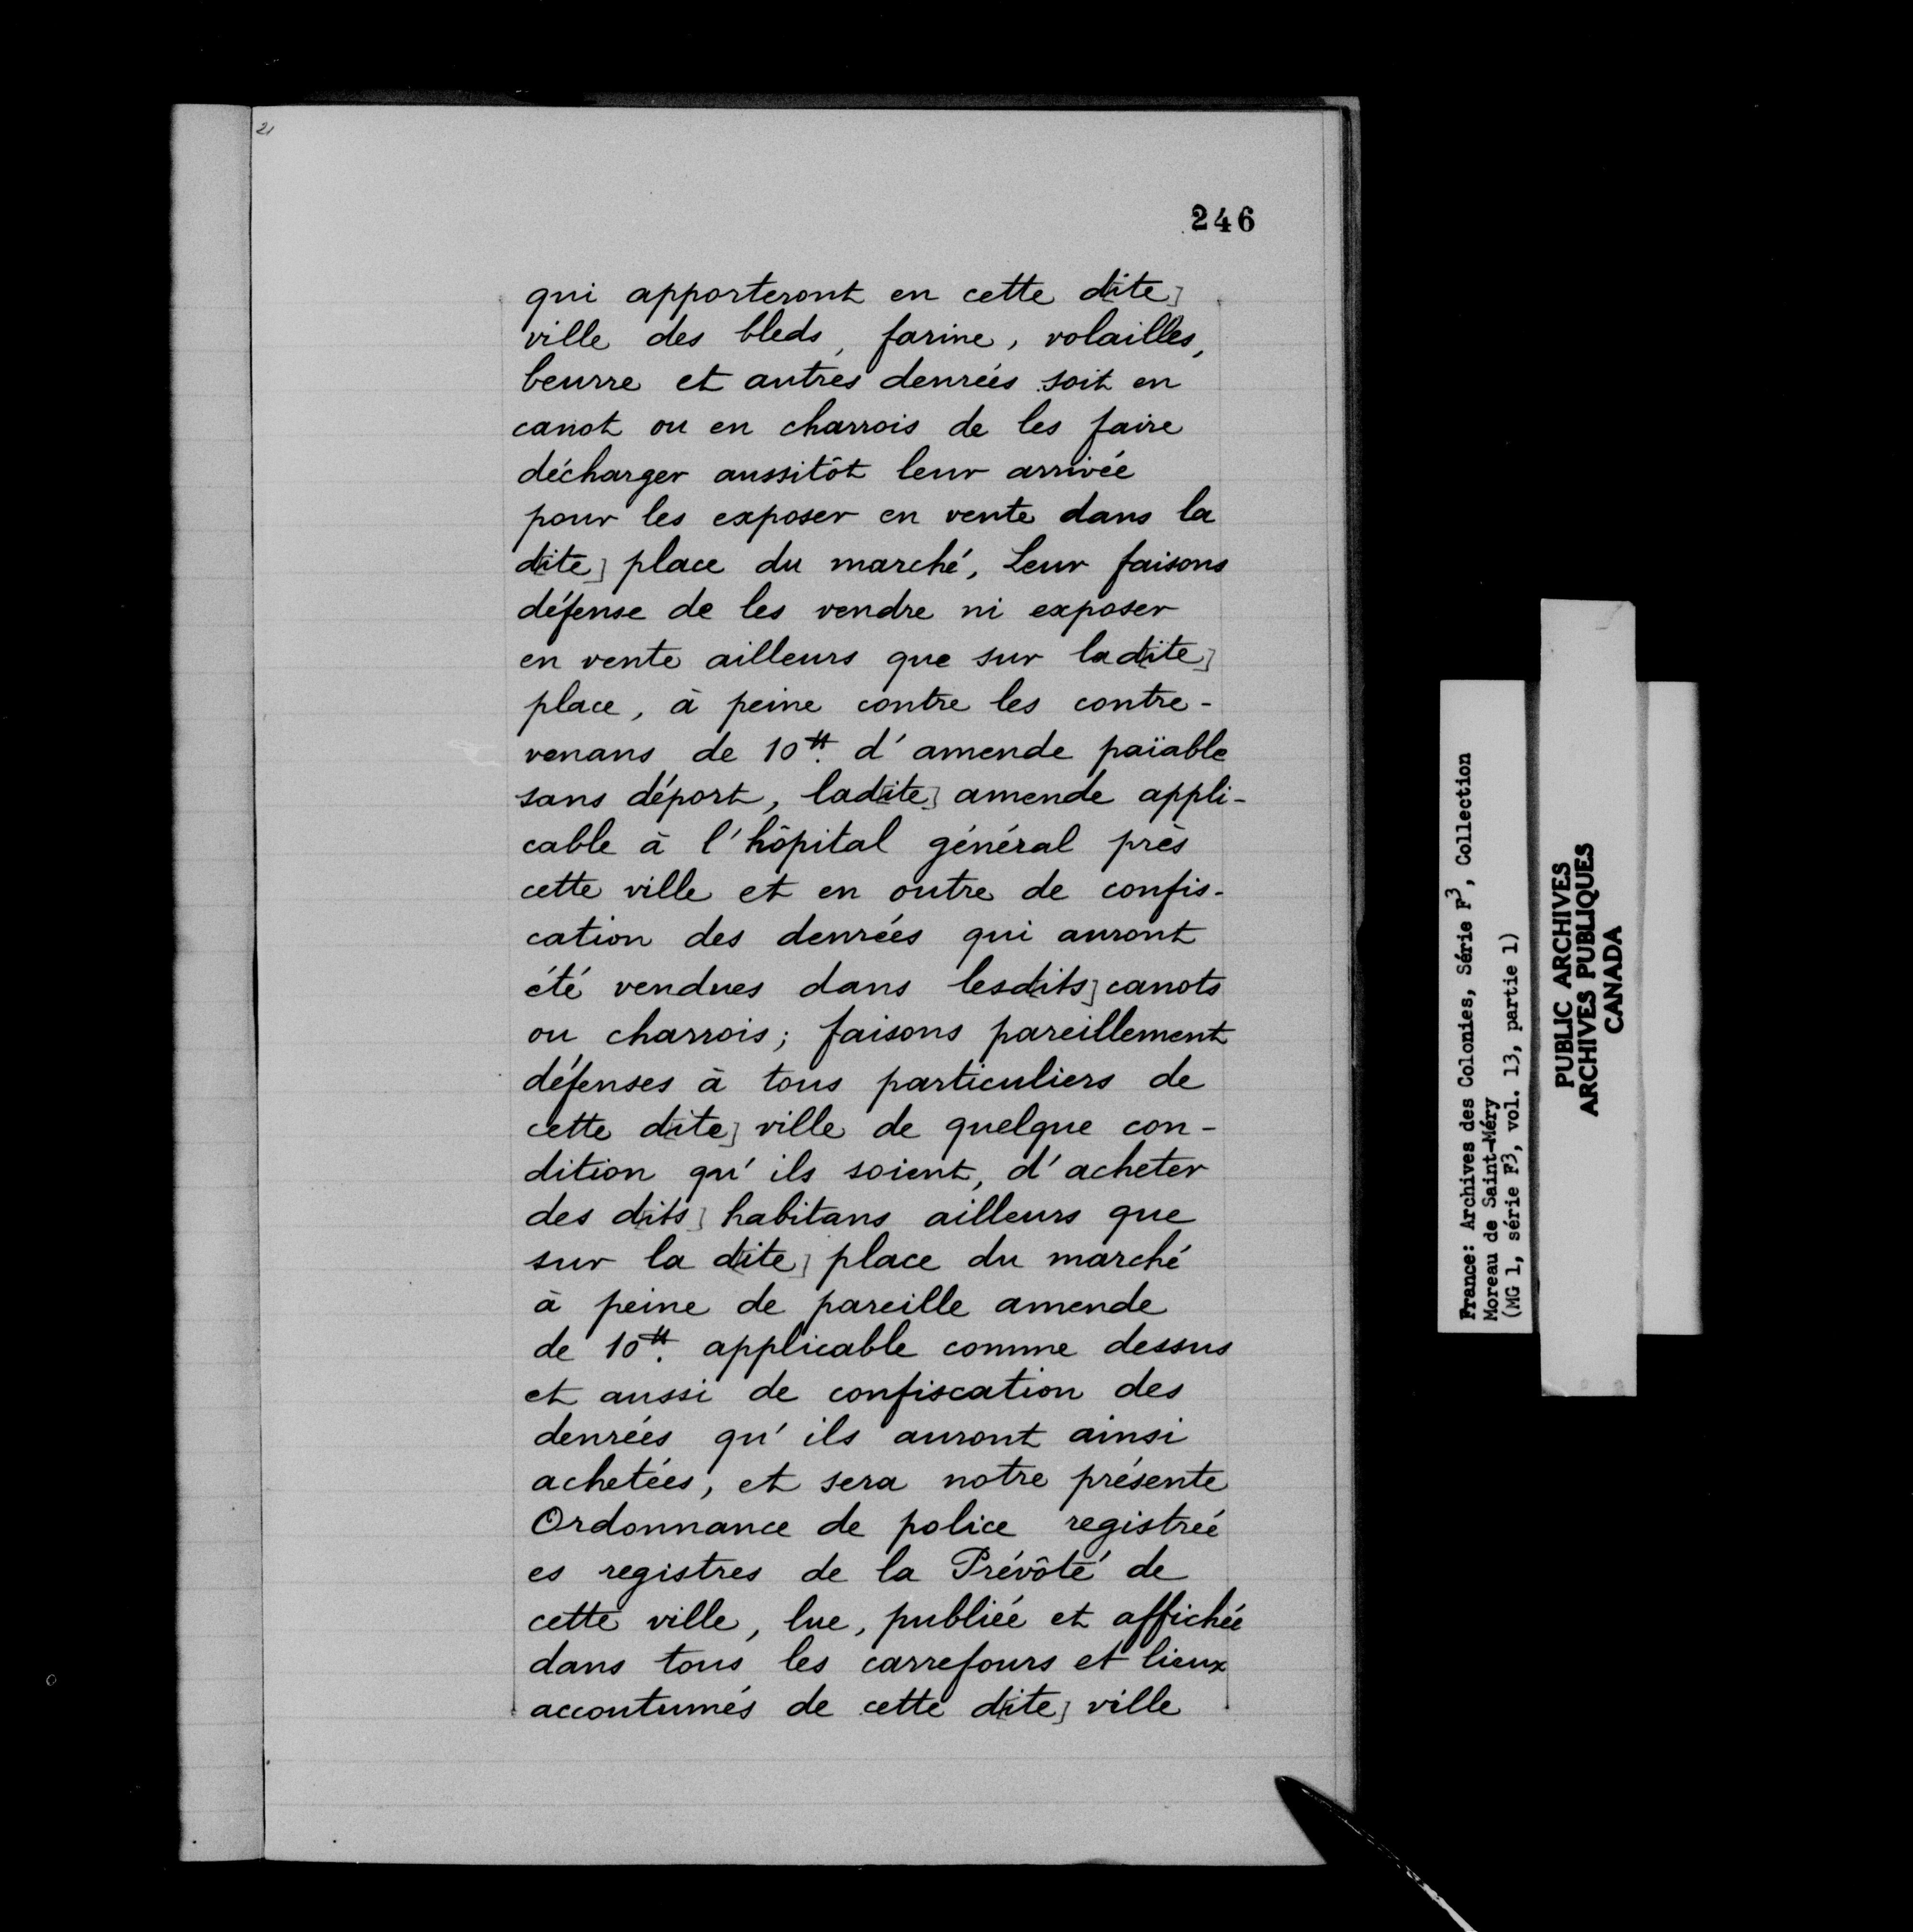 21
246
qui apporteront en cette d[ite]
ville des bleds, farine, volailles,
beurre et autres denrées soit en
canot ou en charrois de les faire
décharger aussitôt leur arrivée
pour les exposer en vente dans la
d[ite] place du marché, Leur faisons
défense de les vendre ni exposer
en vente ailleurs que sur lad[ite]
place, à peine contre les contre-
venans de 10ᵗᵗ. d'amende païable
sans déport, lad[ite] amende appli-
cable à l'hôpital général près
cette ville et en outre de confis-
cation des denrées qui auront
été vendues dans lesd[its] canots
ou charrois; faisons pareillement
défenses à tous particuliers de
cette d[ite] ville de quelque con-
dition qu'ils soient, d'acheter
des d[its] habitans ailleurs que
sur la d[ite] place du marché
à peine de pareille amende
de 10ᵗᵗ. applicable comme dessus
et aussi de confiscation des
denrées qu'ils auront ainsi
achetées, et sera notre présente
Ordonnance de police registrée
es registres de la Prévôté de
cette ville, lue, publiée et affichée
dans tous les carrefours et lieux
accoutumés de cette d[ite] ville
France: Archives des Colonies, Série F³, Collection
Moreau de Saint-Méry
(MG 1, série F³, vol. 13, partie 1)
PUBLIC ARCHIVES
ARCHIVES PUBLIQUES
CANADA